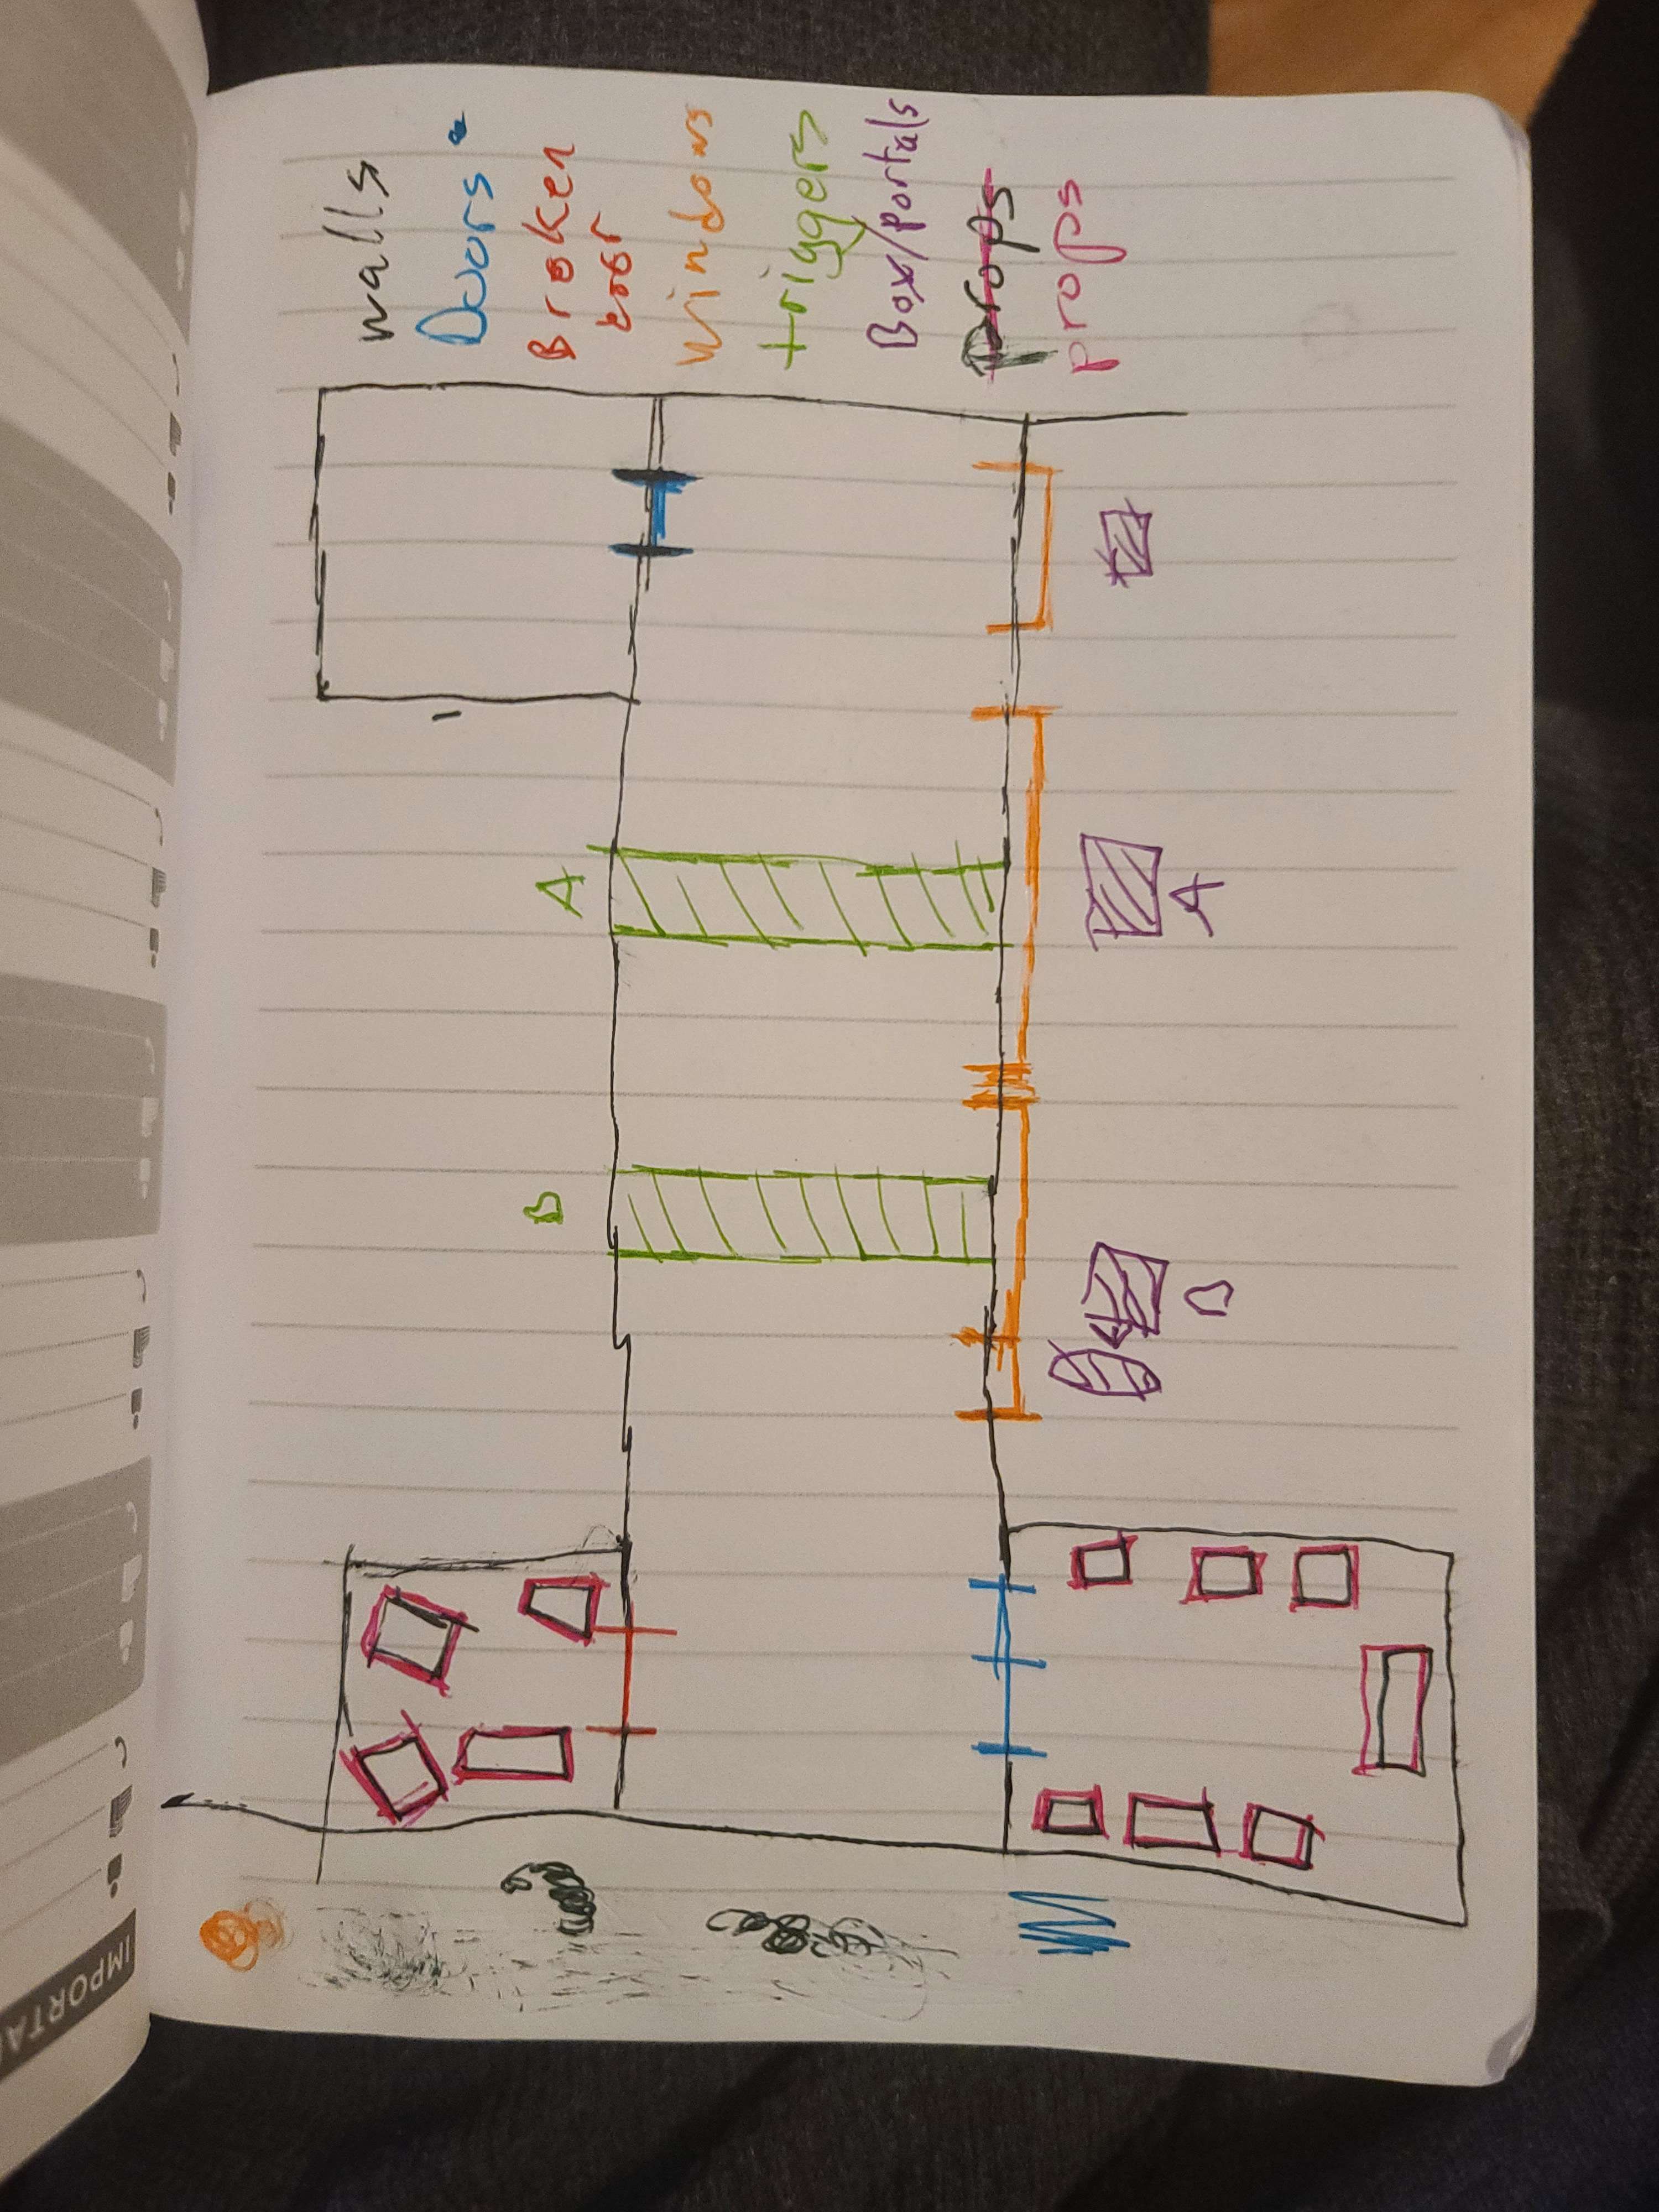 IMPORTA
B
A
walls
Doors
Broken
door
windows
triggers
Box/portals
props
props
B
A